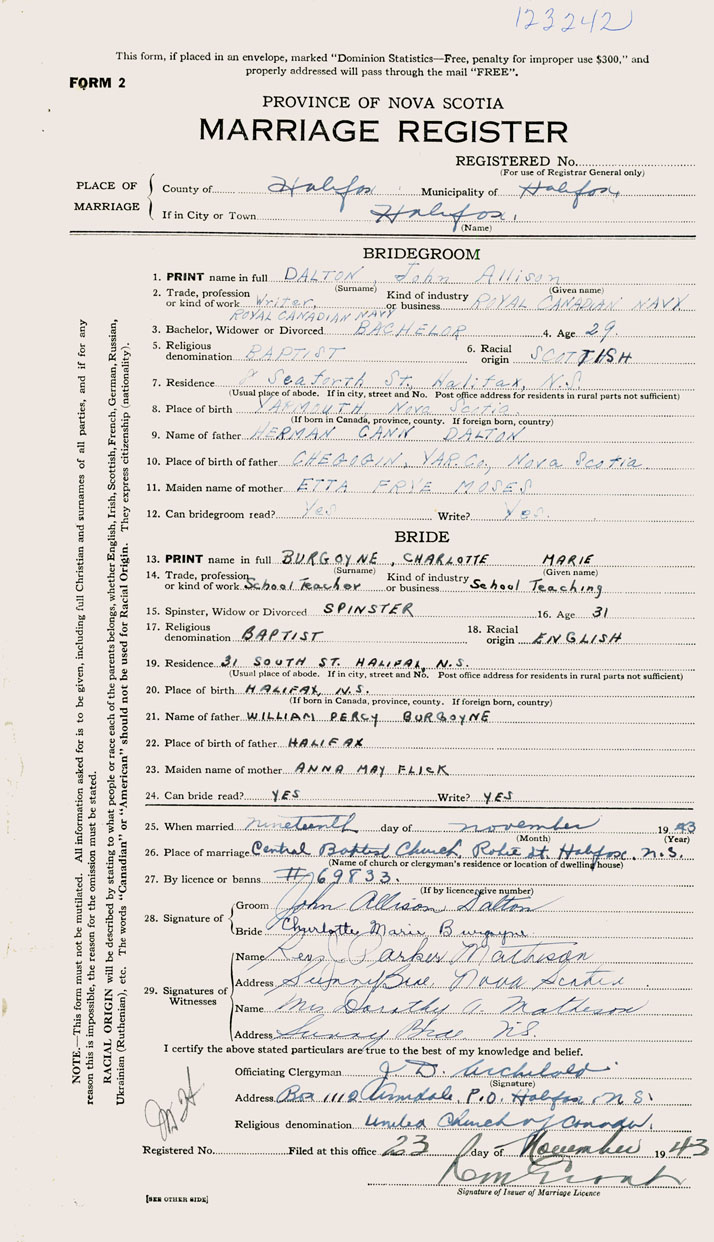 123242
This form, if placed in an envelope, marked "Dominion Statistics—Free, penalty for improper use $300," and
properly addressed will pass through the mail "FREE".
FORM 2
PROVINCE OF NOVA SCOTIA
MARRIAGE REGISTER
REGISTERED No.
(For use of Registrar General only)
PLACE OF MARRIAGE
County of Halifax Municipality of Halifax,
If in City or Town Halifax,
(Name)
BRIDEGROOM
1. PRINT name in full DALTON John Allison
(Surname) (Given name)
2. Trade, profession or kind of work Writer, ROYAL CANADIAN NAVY Kind of industry or business ROYAL CANADIAN NAVY
3. Bachelor, Widower or Divorced BACHELOR 4. Age 29.
5. Religious denomination BAPTIST 6. Racial origin SCOTTISH
7. Residence 8 Seaforth St. Halifax, N.S.
(Usual place of abode. If in city, street and No. Post office address for residents in rural parts not sufficient)
8. Place of birth YARMOUTH, Nova Scotia.
(If born in Canada, province, county. If foreign born, country)
9. Name of father HERMAN CANN DALTON
10. Place of birth of father CHEGOGIN, YAR. Co., Nova Scotia.
11. Maiden name of mother ETTA FRYE MOSES
12. Can bridegroom read? Yes Write? Yes.
BRIDE
13. PRINT name in full BURGOYNE, CHARLOTTE MARIE
(Surname) (Given name)
14. Trade, profession or kind of work School Teacher Kind of industry or business School Teaching
15. Spinster, Widow or Divorced SPINSTER 16. Age 31
17. Religious denomination BAPTIST 18. Racial origin ENGLISH
19. Residence 31 SOUTH ST. HALIFAX, N.S.
(Usual place of abode. If in city, street and No. Post office address for residents in rural parts not sufficient)
20. Place of birth HALIFAX, N.S.
(If born in Canada, province, county. If foreign born, country)
21. Name of father WILLIAM PERCY BURGOYNE
22. Place of birth of father HALIFAX
23. Maiden name of mother ANNA MAY FLICK
24. Can bride read? YES Write? YES
25. When married nineteenth day of november 1943
(Month) (Year)
26. Place of marriage Central Baptist Church, Robie St. Halifax, N.S.
(Name of church or clergyman's residence or location of dwelling house)
27. By licence or banns #69833.
(If by licence, give number)
28. Signature of
Groom John Allison Dalton
Bride Charlotte Marie Burgoyne
29. Signatures of Witnesses
Name Rev. J Parker Matheson
Address Sunny Brae, Nova Scotia.
Name Mrs Dorothy A. Matheson
Address Sunny Brae N.S.
I certify the above stated particulars are true to the best of my knowledge and belief.
Officiating Clergyman J. D. Archibald
(Signature)
Address Box 111 Armdale, P.O. Halifax, N.S.
Religious denomination United Church of Canada.
Registered No. Filed at this office 23 day of November 1943
Signature of Issuer of Marriage Licence
[SEE OTHER SIDE]
NOTE.—This form must not be mutilated. All information asked for is to be given, including full Christian and surnames of all parties, and if for any
reason this is impossible, the reason for the omission must be stated.
RACIAL ORIGIN will be described by stating to what people or race each of the parents belongs, whether English, Irish, Scottish, French, German, Russian,
Ukrainian (Ruthenian), etc. The words "Canadian" or "American" should not be used for Racial Origin. They express citizenship (nationality).